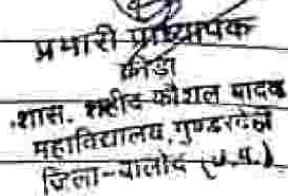 प्रभारी प्राध्यापक
क्रीडा
शास. शहीद कौशल यादव
महाविद्यालय, गुण्डरदेही
जिला-बालोद